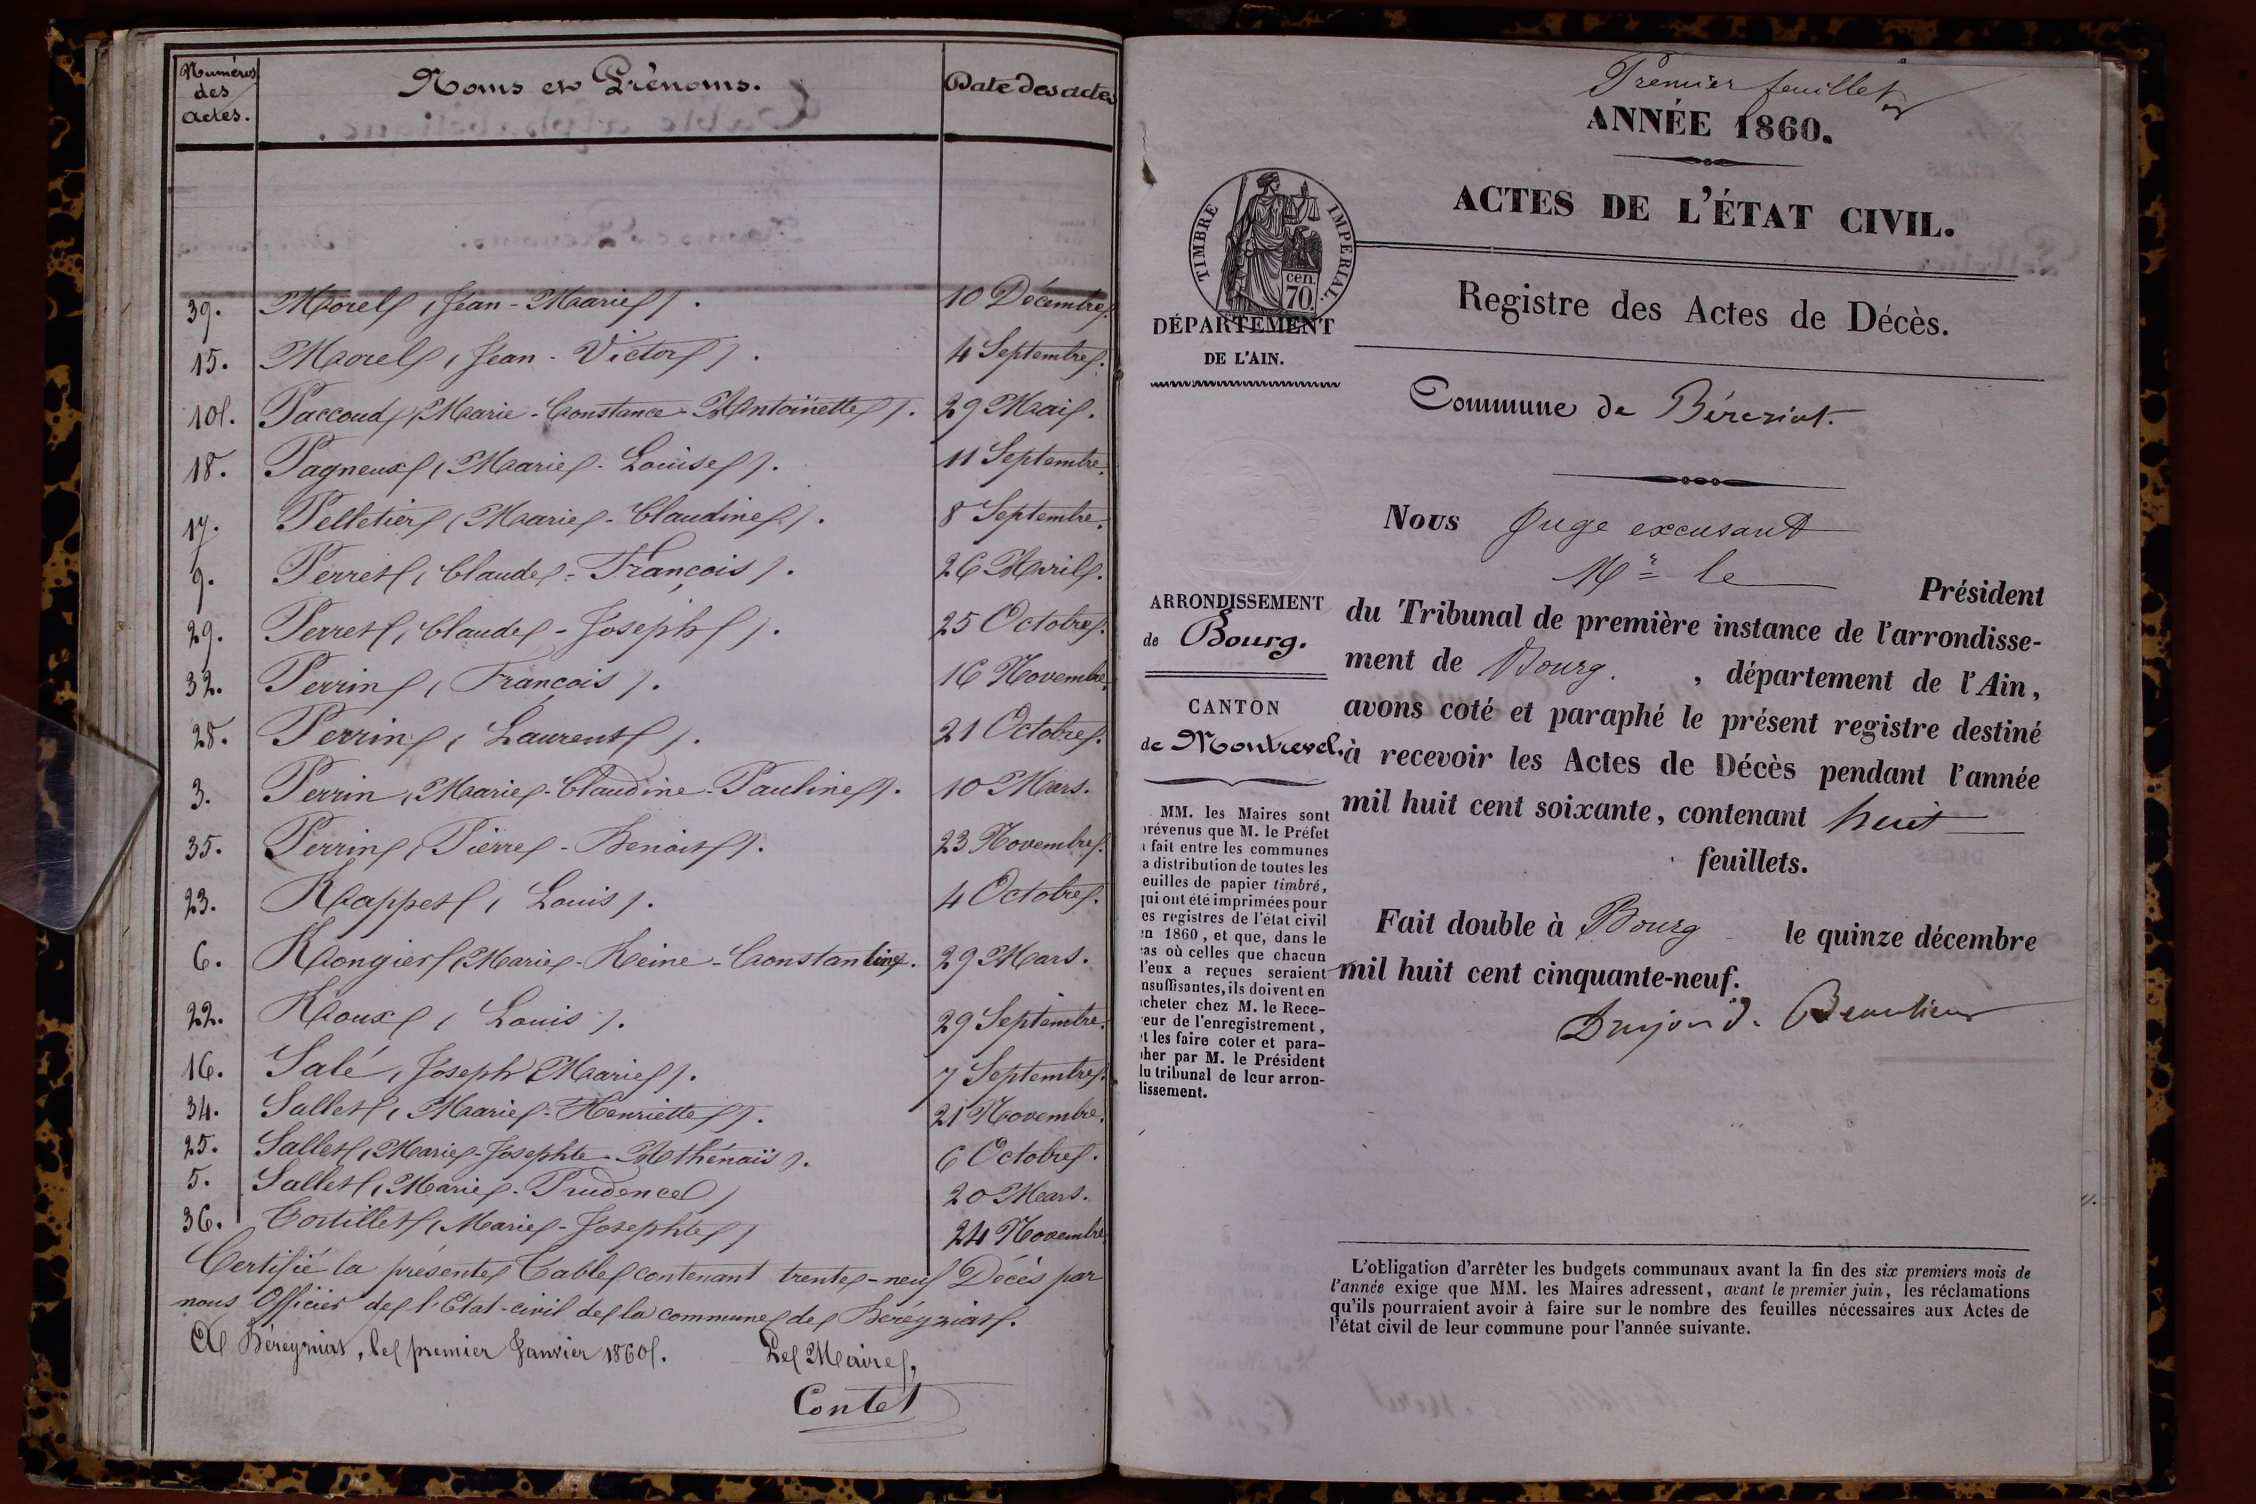 Numéros des actes. Noms et Prénoms. Date des actes
39. Morel, Jean-Marie. 10 Décembre.
15. Morel, Jean-Victor. 4 Septembre.
10. Paccoud, Marie-Constance-Antoinette. 29 Mai.
18. Pagneux, Marie-Louise. 11 Septembre.
17. Pelletier, Marie-Claudine. 8 Septembre.
9. Perret, Claude-François. 26 Avril.
29. Perret, Claude-Joseph. 25 Octobre.
32. Perrin, François. 16 Novembre.
28. Perrin, Laurent. 21 Octobre.
3. Perrin, Marie-Claudine-Pauline. 10 Mars.
35. Perrin, Pierre-Benoit. 23 Novembre.
23. Rappet, Louis. 4 Octobre.
6. Rongier, Marie-Reine-Constantine. 29 Mars.
22. Roux, Louis. 29 Septembre.
16. Salé, Joseph Marie. 7 Septembre.
34. Sallet, Marie-Henriette. 21 Novembre.
25. Sallet, Marie-Josephte-Athénaïs. 6 Octobre.
5. Sallet, Marie-Prudence 20 Mars.
36. Tortillet, Marie-Josephte 24 Novembre
Certifié la présente Table contenant trente-neuf Décès par
nous Officier de l'Etat-civil de la commune de Béréyziat.
A Béreyziat, le premier Janvier 1860.
Le Maire,
Contet
Premier feuillet
ANNÉE 1860.
ACTES DE L'ÉTAT CIVIL.
TIMBRE IMPERIAL.
cen.
70
DÉPARTEMENT
DE L'AIN.
Registre des Actes de Décès.
Commune de Béreziat.
Nous Juge excusant
Mr le Président
du Tribunal de première instance de l'arrondisse-
ment de Bourg. , département de l'Ain,
avons coté et paraphé le présent registre destiné
à recevoir les Actes de Décès pendant l'année
mil huit cent soixante, contenant huit
feuillets.
Fait double à Bourg le quinze décembre
mil huit cent cinquante-neuf.
ARRONDISSEMENT
de Bourg.
CANTON
de Montrevel.
MM. les Maires sont
révenus que M. le Préfet
fait entre les communes
a distribution de toutes les
euilles de papier timbré,
qui ont été imprimées pour
es registres de l'état civil
n 1860, et que, dans le
as où celles que chacun
l'eux a reçues seraient
nsuffisantes, ils doivent en
cheter chez M. le Rece-
eur de l'enregistrement,
t les faire coter et para-
her par M. le Président
lu tribunal de leur arron-
lissement.
L'obligation d'arrêter les budgets communaux avant la fin des six premiers mois de
l'année exige que MM. les Maires adressent, avant le premier juin, les réclamations
qu'ils pourraient avoir à faire sur le nombre des feuilles nécessaires aux Actes de
l'état civil de leur commune pour l'année suivante.